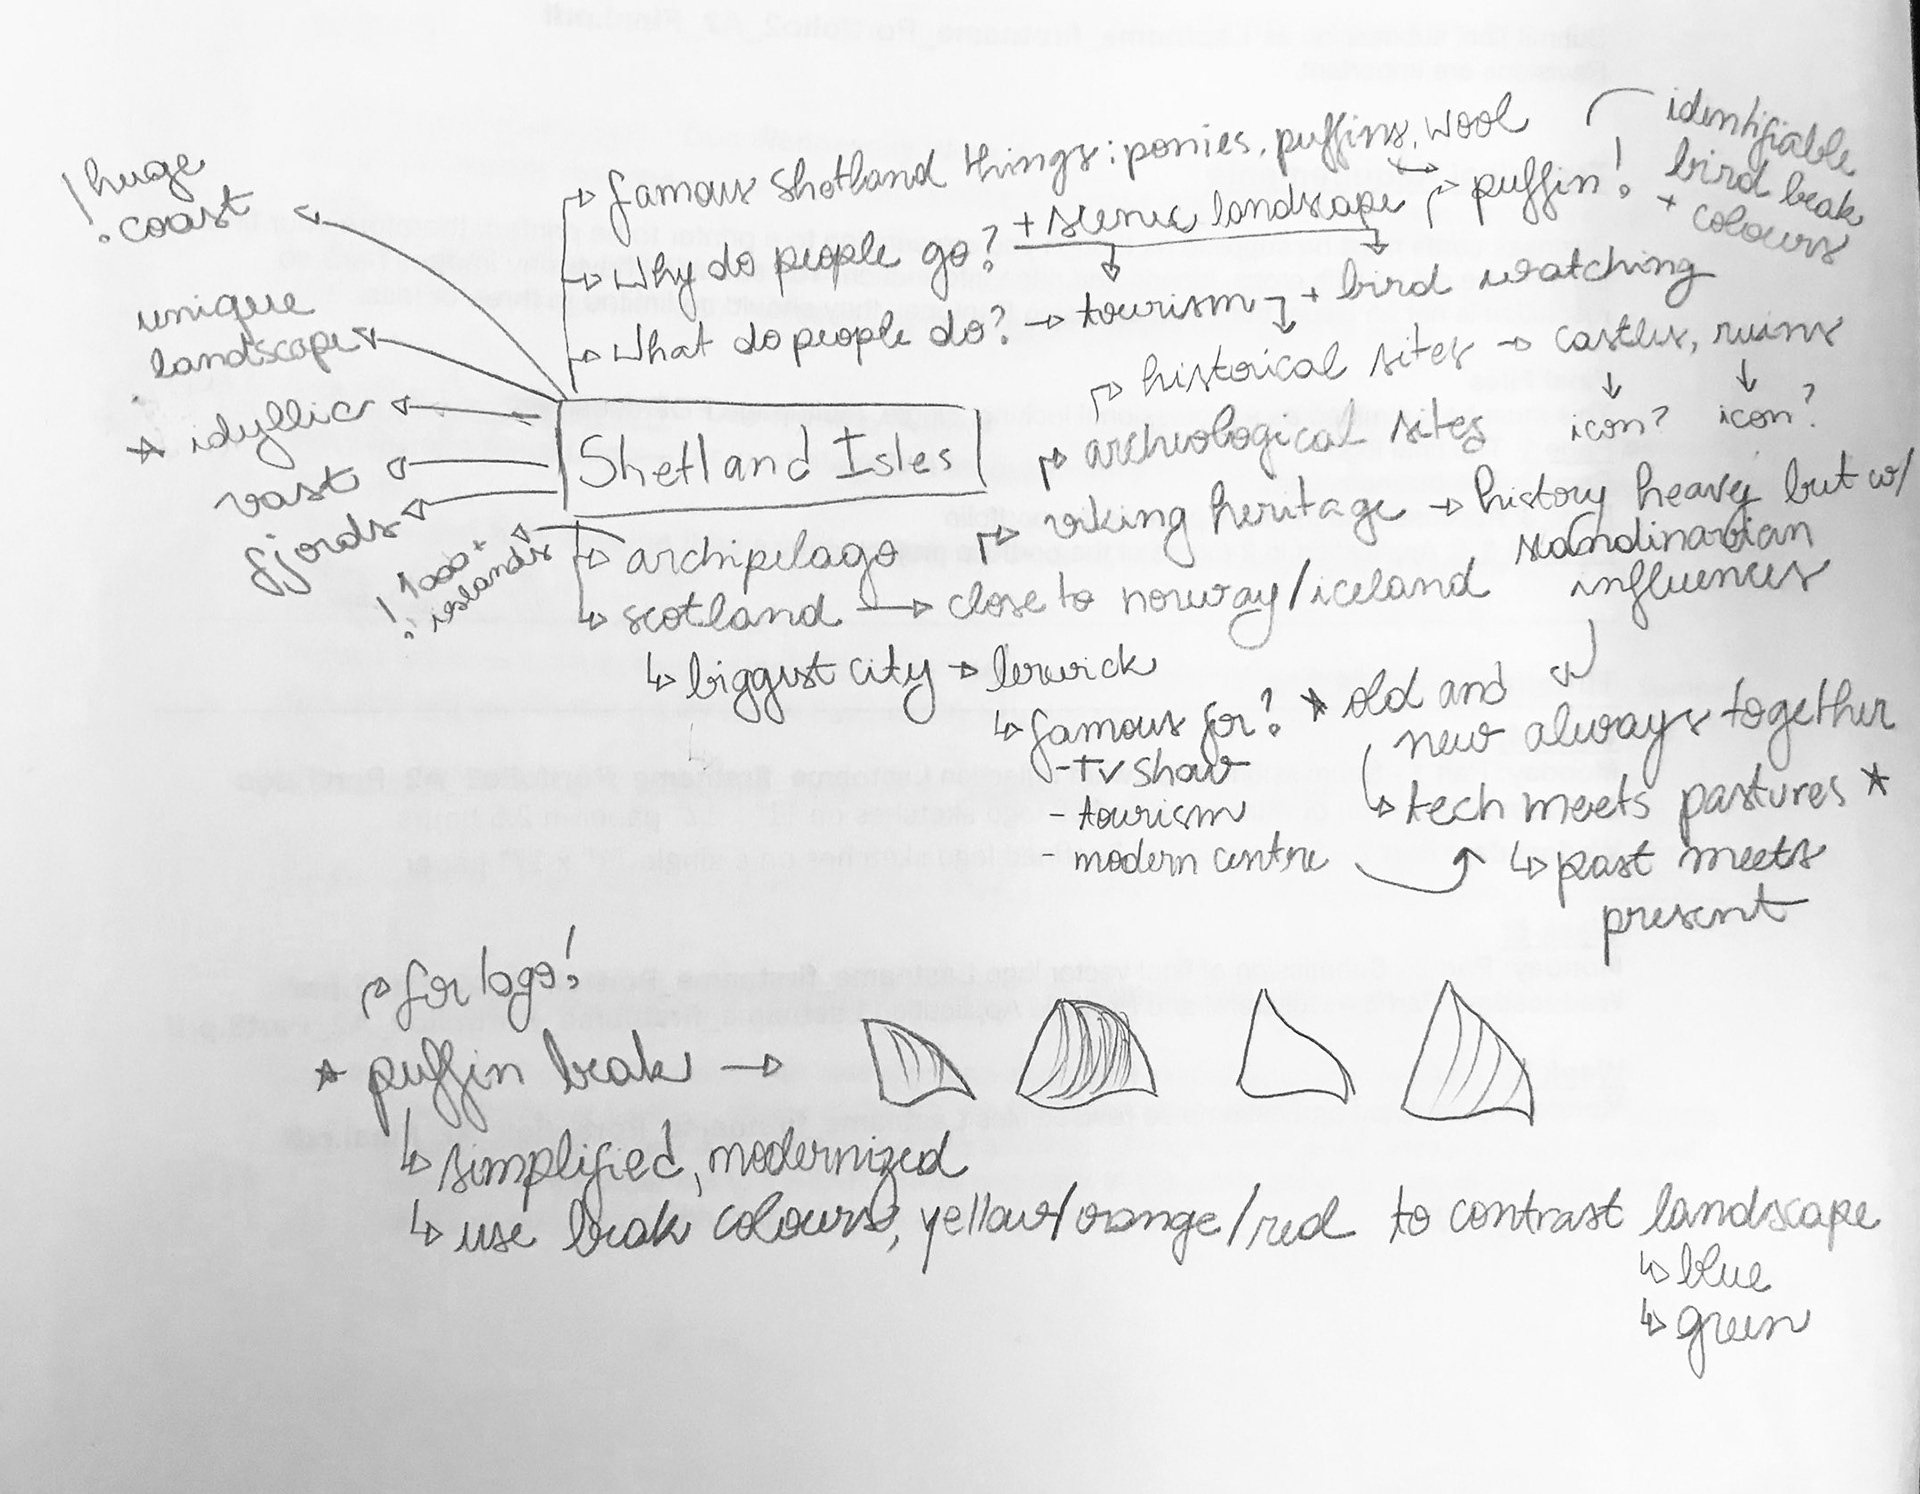 ! huge
coast
unique
landscape
★ idyllic
vast
fjords
! 1000+
islands
famous Shetland things: ponies, puffins, wool
puffin!
identifiable
bird beak
+ colours
Why do people go? + scenic landscape
What do people do? → tourism + bird watching
historical sites → castles, ruins
icon? icon?
archeological sites
Shetland Isles
viking heritage → history heavy but w/
scandinavian
influences
archipelago
scotland → close to norway/iceland
biggest city → lerwick
famous for?
- TV show
- tourism
- modern centre
★ old and
new always together
tech meets pastures ★
past meets
present
for logo!
★ puffin beak →
simplified, modernized
use beak colours, yellow/orange/red to contrast landscape
blue
green